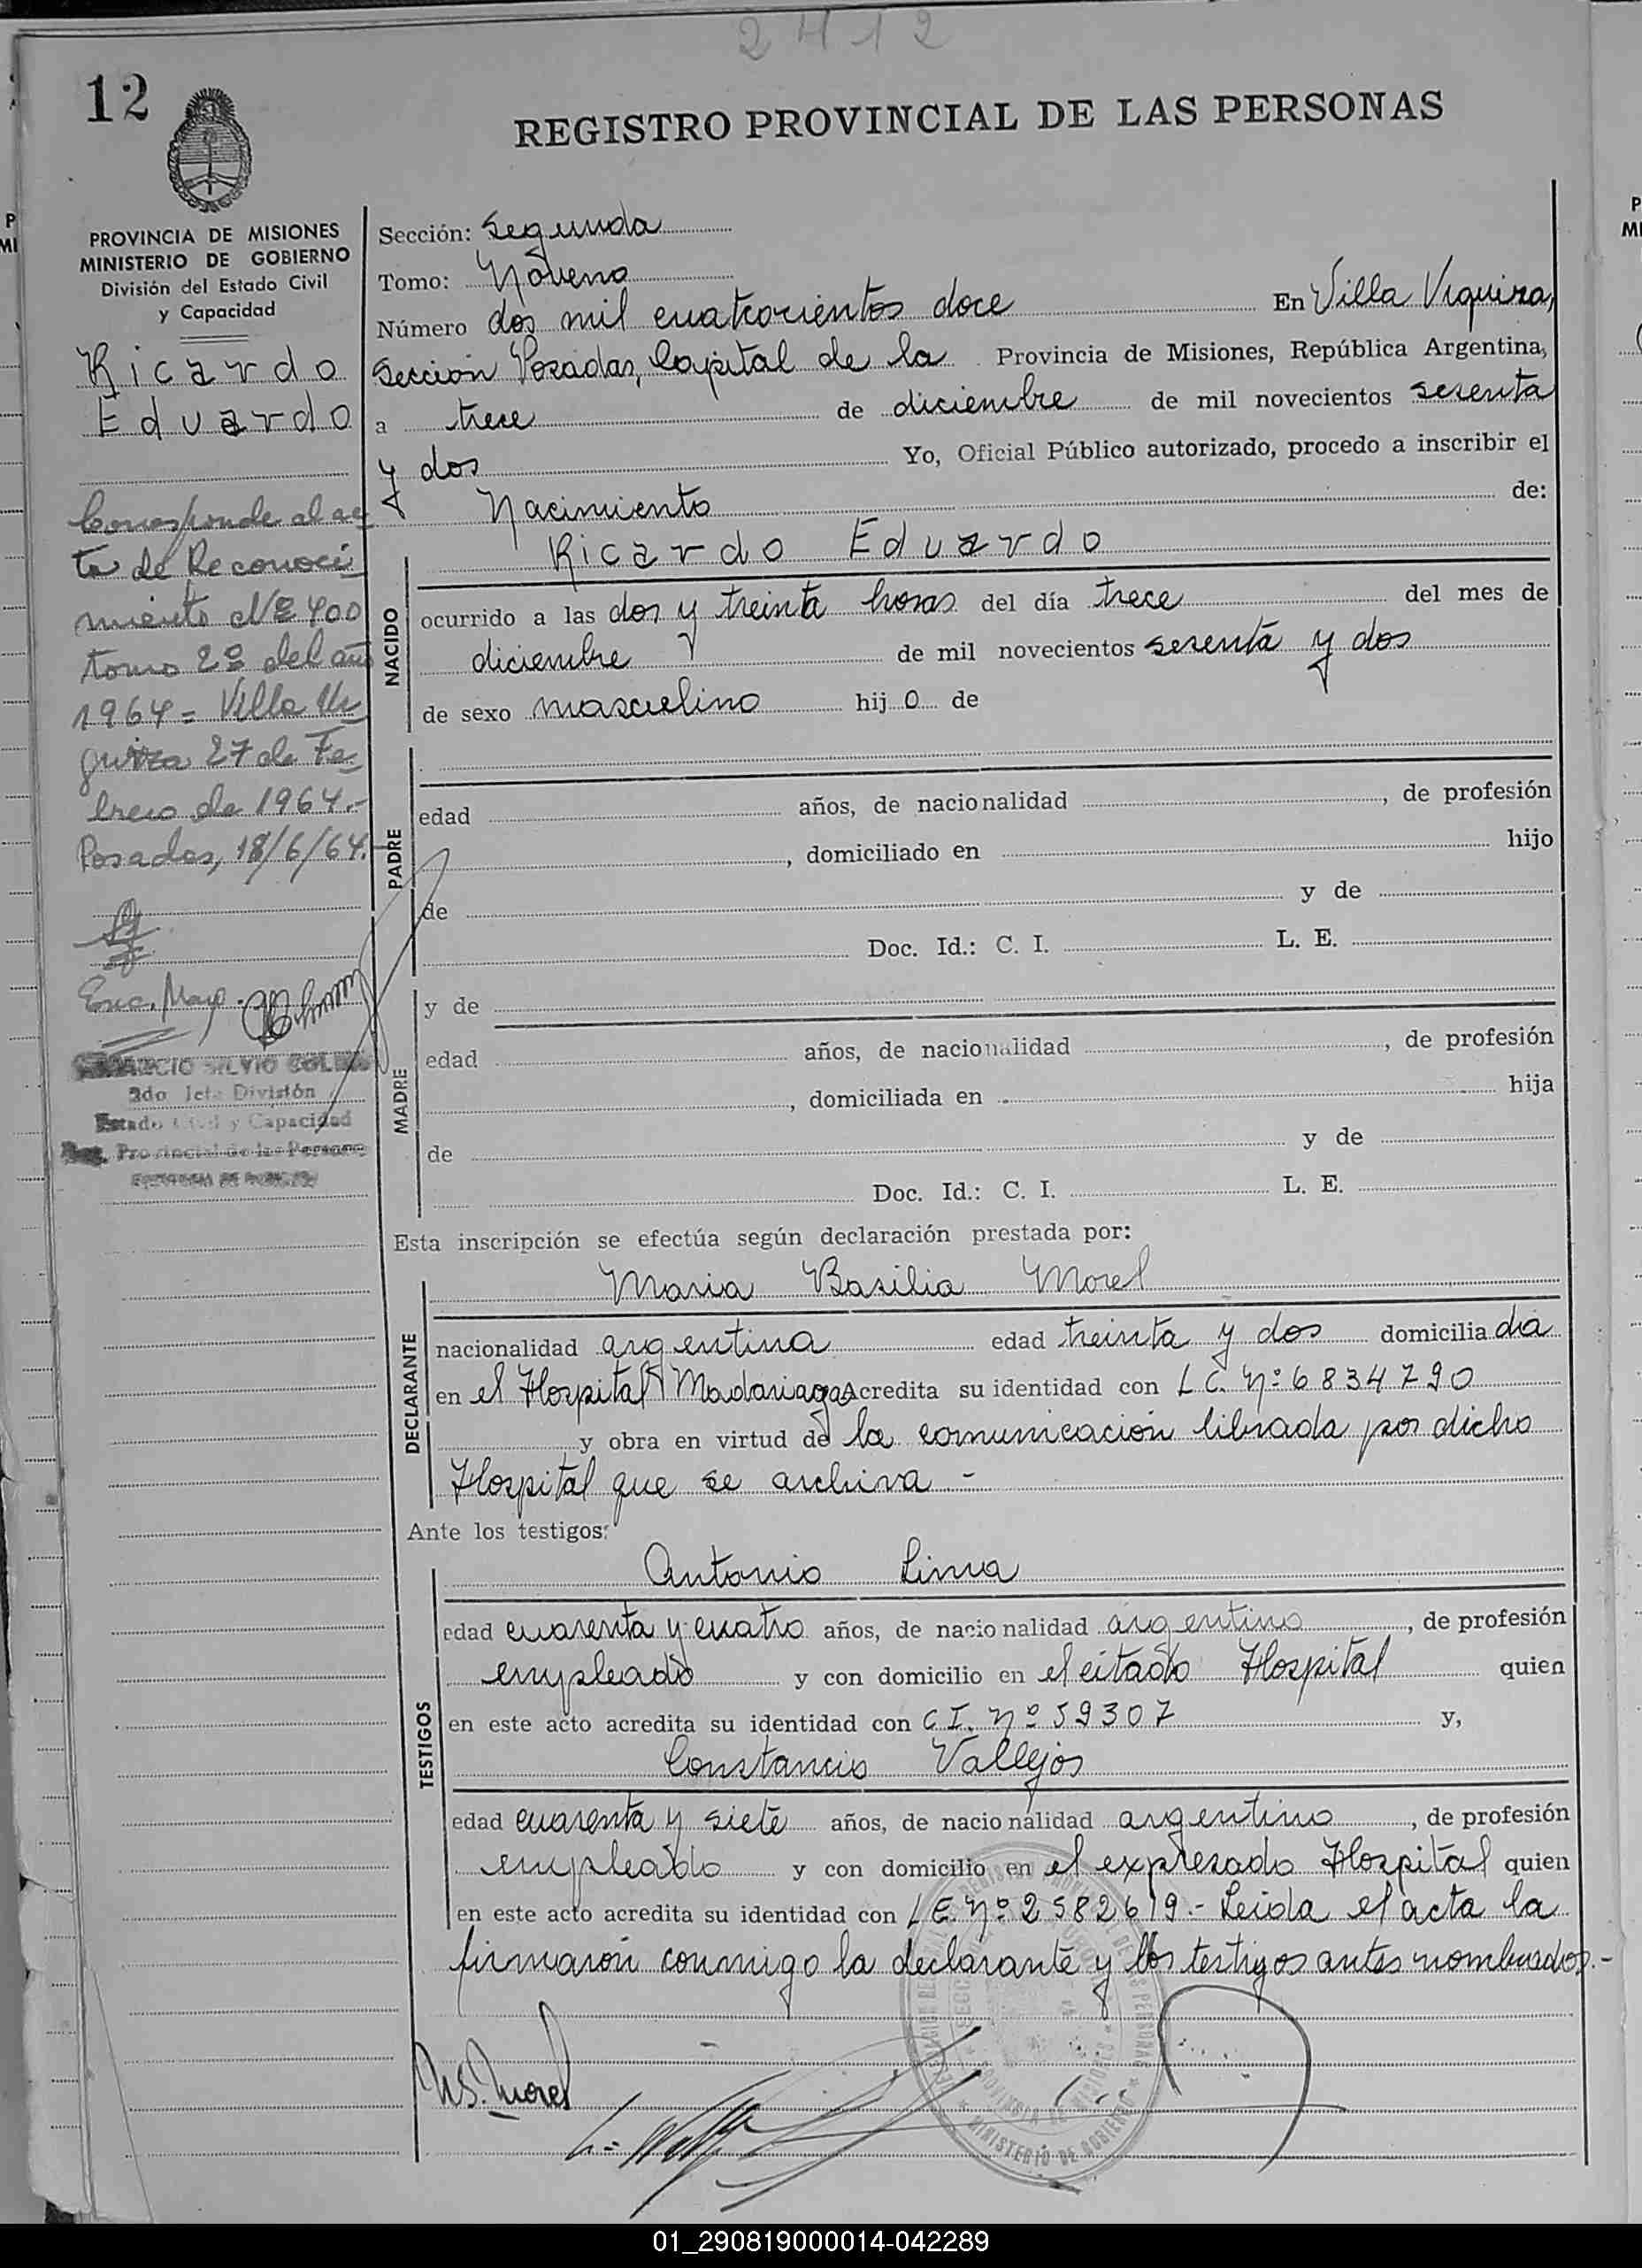 2412
12
REGISTRO PROVINCIAL DE LAS PERSONAS
PROVINCIA DE MISIONES
MINISTERIO DE GOBIERNO
División del Estado Civil
y Capacidad
Ricardo
Eduardo
Corresponde al ac
ta de Reconoci
miento Nº 400
tomo 2º del año
1964 = Villa Ur
quiza 27 de Fe
brero de 1964.-
Posadas, 18/6/64.
Enc. Mayo.
SILVIO
2do Jefe División
Estado Civil y Capacidad
Reg. Provincial de las Personas
Sección: Segunda
Tomo: Noveno
Número dos mil cuatrocientos doce En Villa Urquiza,
Sección Posadas, Capital de la Provincia de Misiones, República Argentina,
a trece de diciembre de mil novecientos sesenta
y dos Yo, Oficial Público autorizado, procedo a inscribir el
Nacimiento de:
Ricardo Eduardo
NACIDO
ocurrido a las dos y treinta horas del día trece del mes de
diciembre de mil novecientos sesenta y dos
de sexo masculino hijo de
PADRE
edad años, de nacionalidad , de profesión
, domiciliado en hijo
de y de
Doc. Id.: C. I. L. E.
MADRE
y de
edad años, de nacionalidad , de profesión
, domiciliada en hija
de y de
Doc. Id.: C. I. L. E.
Esta inscripción se efectúa según declaración prestada por:
DECLARANTE
Maria Basilia Morel
nacionalidad argentina edad treinta y dos domiciliada
en el Hospital Madariaga Acredita su identidad con L C. Nº 6834790
y obra en virtud de la comunicación librada por dicho
Hospital que se archiva -
Ante los testigos:
TESTIGOS
Antonio Lima
edad cuarenta y cuatro años, de nacionalidad argentino , de profesión
empleado y con domicilio en el citado Hospital quien
en este acto acredita su identidad con C I. Nº 59307 y,
Constancio Vallejos
edad cuarenta y siete años, de nacionalidad argentino , de profesión
empleado y con domicilio en el expresado Hospital quien
en este acto acredita su identidad con L E. Nº 2582619.- Leída el acta la
firmaron conmigo la declarante y los testigos antes nombrados.-
Morel
MINISTERIO DE GOBIERNO
01_290819000014-042289